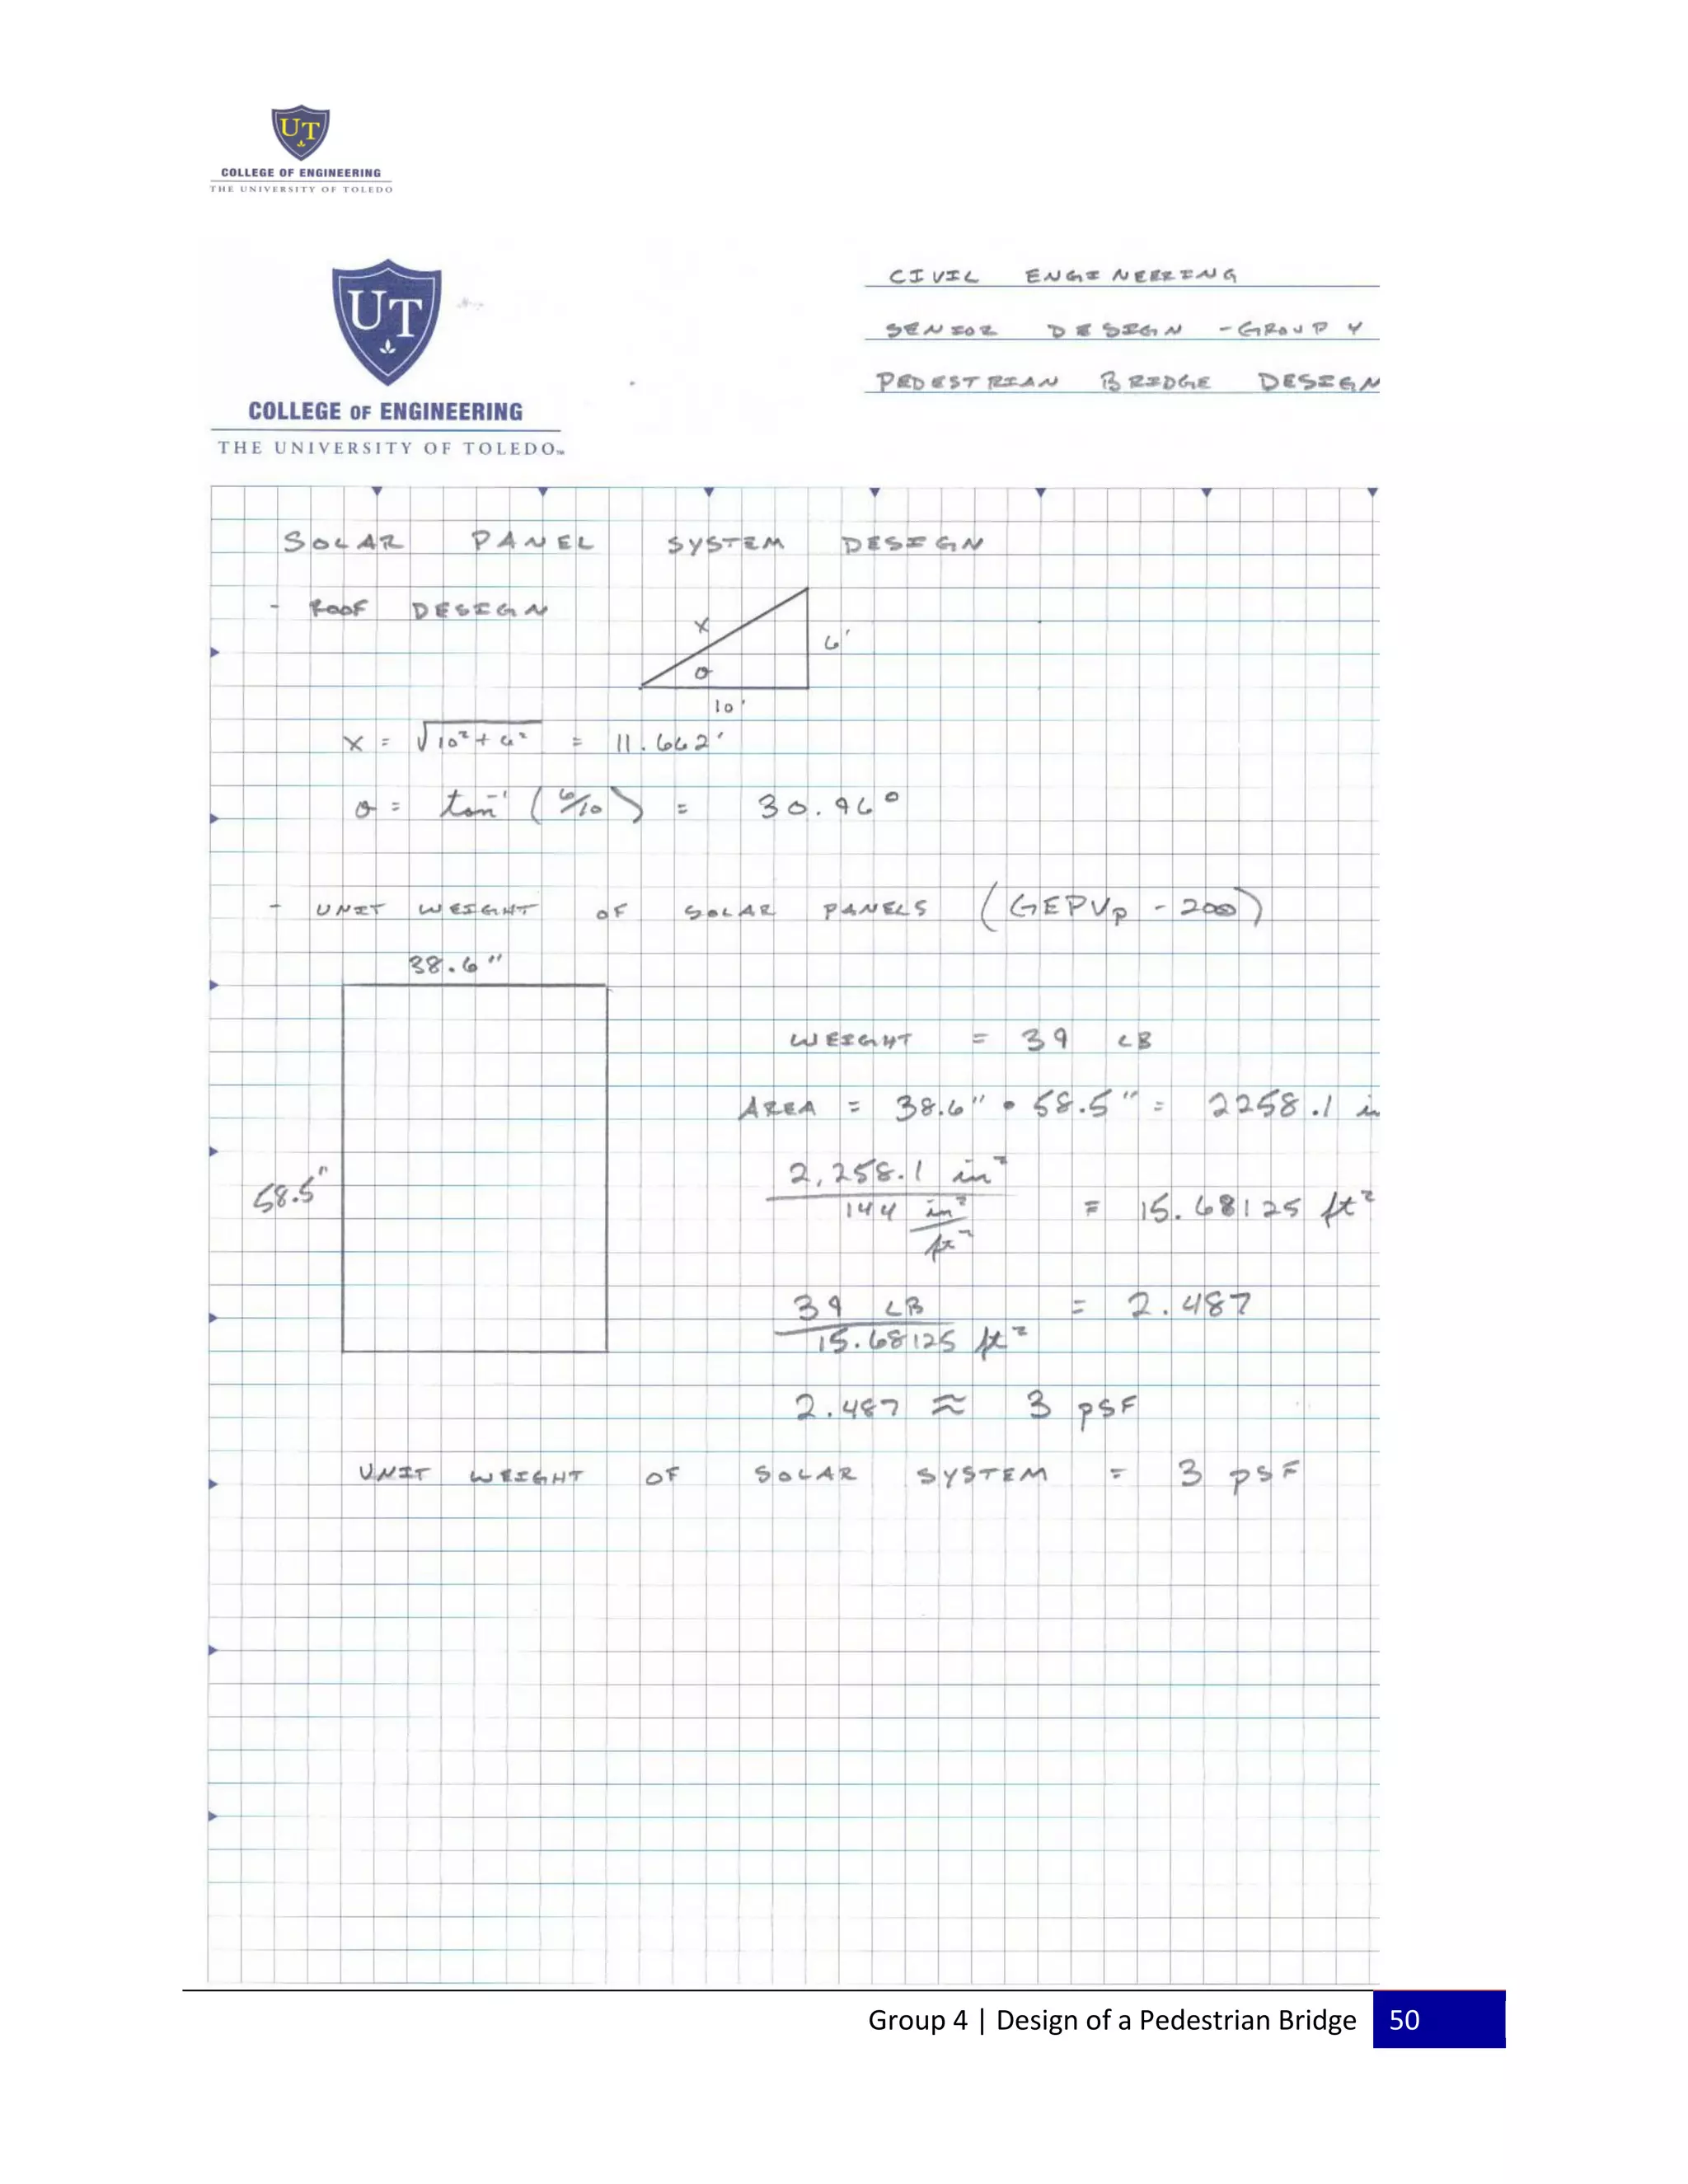 UT
COLLEGE OF ENGINEERING
THE UNIVERSITY OF TOLEDO
UT
COLLEGE OF ENGINEERING
THE UNIVERSITY OF TOLEDO™
CIVIL ENGINEERING
SENIOR DESIGN - GROUP 4
PEDESTRIAN BRIDGE DESIGN
SOLAR PANEL SYSTEM DESIGN
- ROOF DESIGN
X
6'
θ
10'
X = √10² + 6² = 11.662'
θ = tan⁻¹ (6/10) = 30.96°
- UNIT WEIGHT OF SOLAR PANELS (GEPVp - 200)
38.6"
WEIGHT = 39 LB
AREA = 38.6" • 58.5" = 2258.1 in
58.5"
2,258.1 in²
144 in²/ft² = 15.68125 ft²
39 LB = 2.487
15.68125 ft²
2.487 ≈ 3 PSF
UNIT WEIGHT OF SOLAR SYSTEM = 3 PSF
Group 4 | Design of a Pedestrian Bridge 50